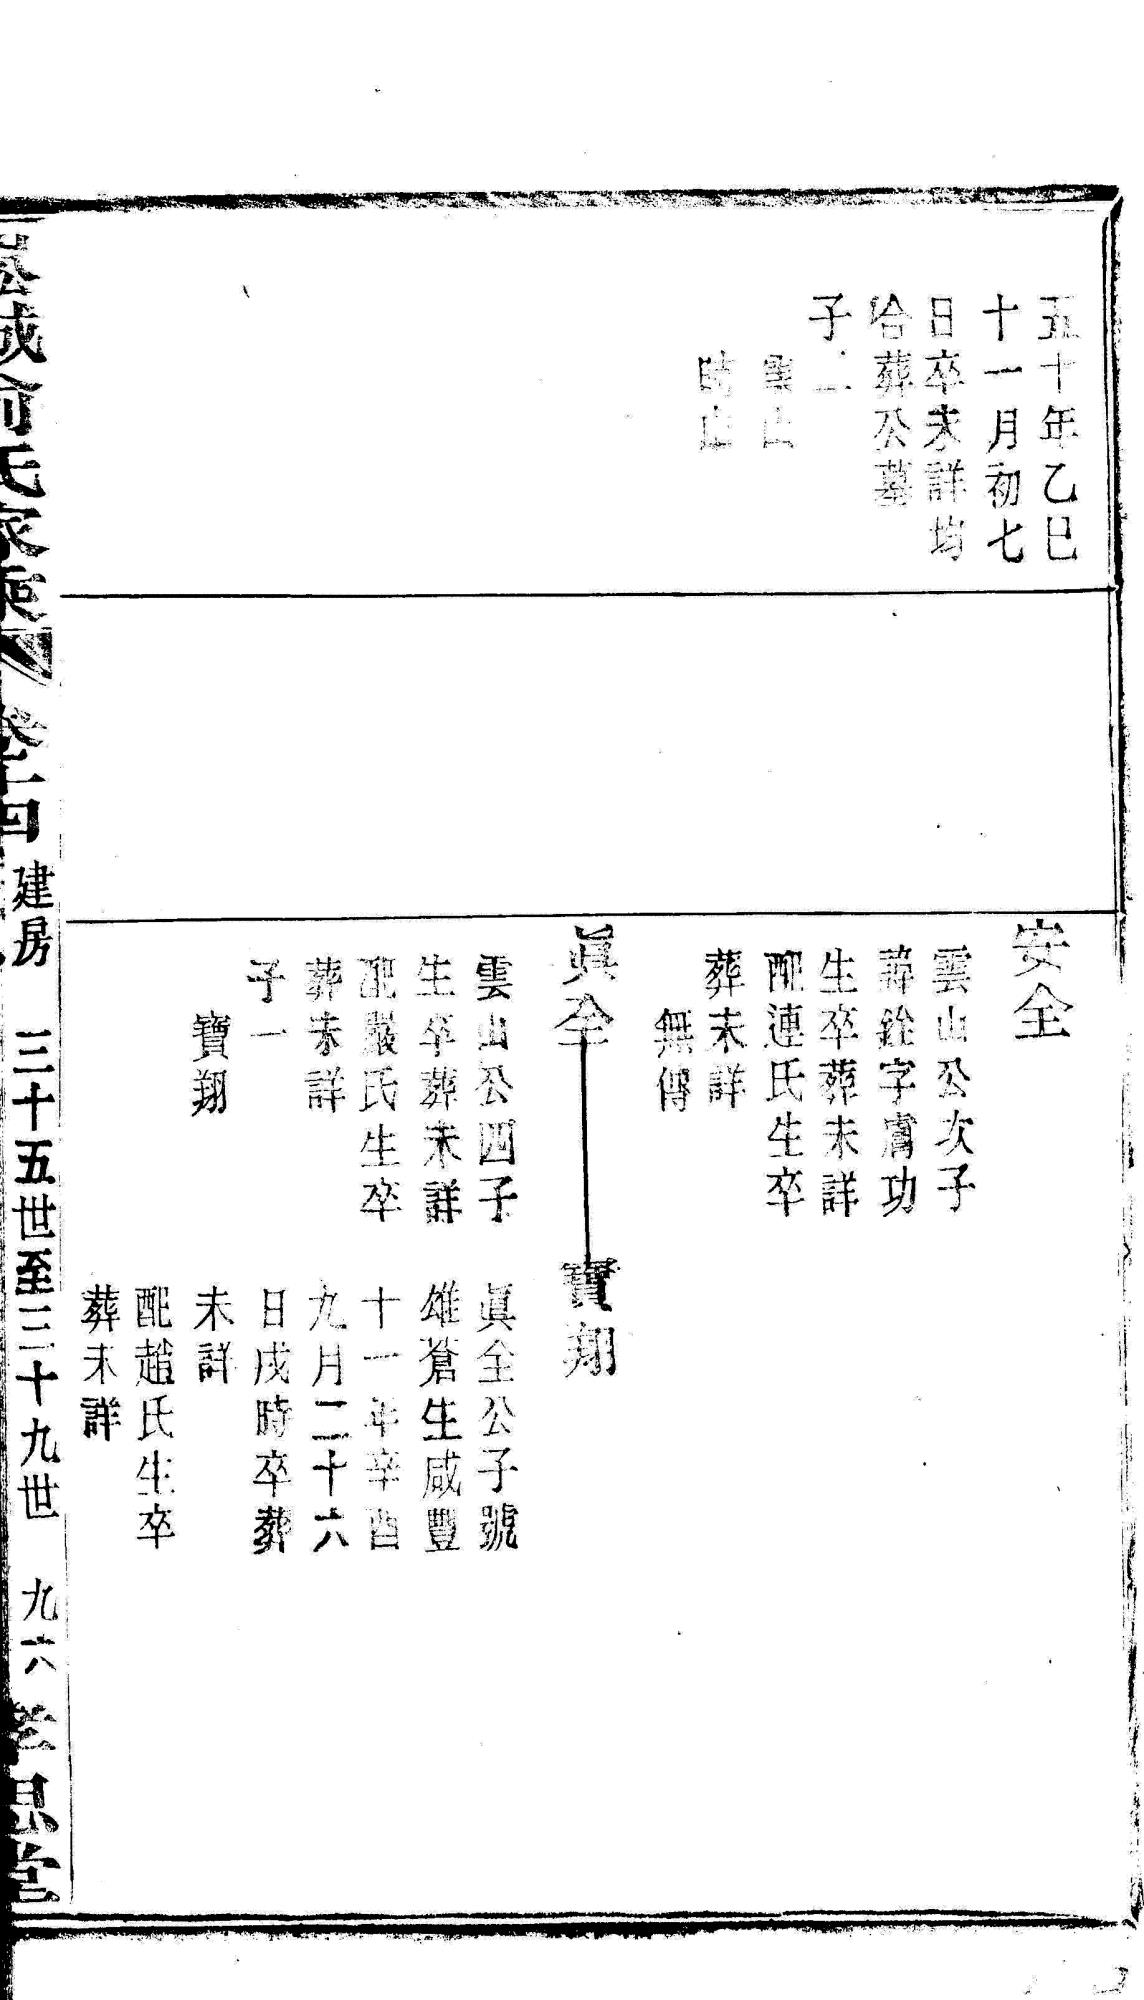 五十年乙巳
十一月初七
日卒未詳均
合葬公墓
子二
雲山
時山
安全
雲山公次子
諱銓字膚功
生卒葬未詳
配連氏生卒
葬未詳
無傳
眞全
雲山公四子
生卒葬未詳
配嚴氏生卒
葬未詳
子一
寶翔
寶翔
眞全公子號
雄蒼生咸豐
十一年辛酉
九月二十六
日戌時卒葬
未詳
配趙氏生卒
葬未詳
俞氏家乘 卷十四 建房 三十五世至三十九世 九六 孝思堂